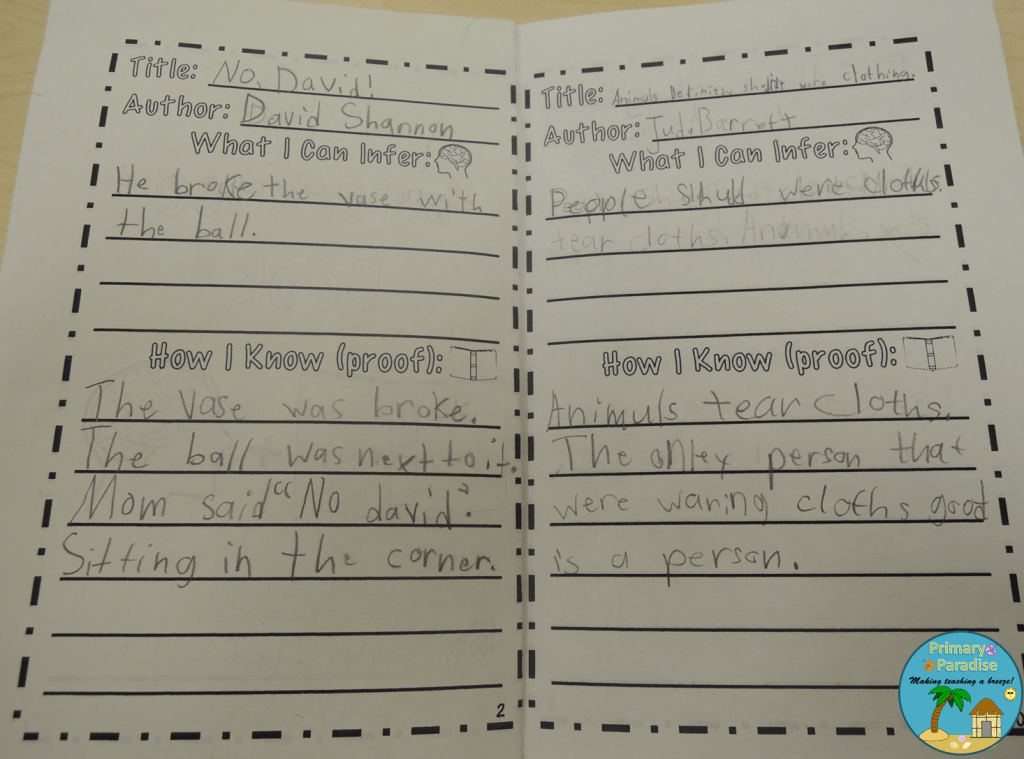 Title: No, David!
Author: David Shannon
What I Can Infer:
He broke the vase with
the ball.
How I Know (proof):
The vase was broke.
The ball was next to it.
Mom said "No david".
Sitting in the corner.
2
Title: Animals Definitly shuldnt were clothing.
Author: Judi Barrett
What I Can Infer:
People shuld were cloths.
tear cloths. Animuls
How I Know (proof):
Animuls tear cloths.
The onley person that
were waring cloths good
is a person.
Primary
Paradise
Making teaching a breeze!